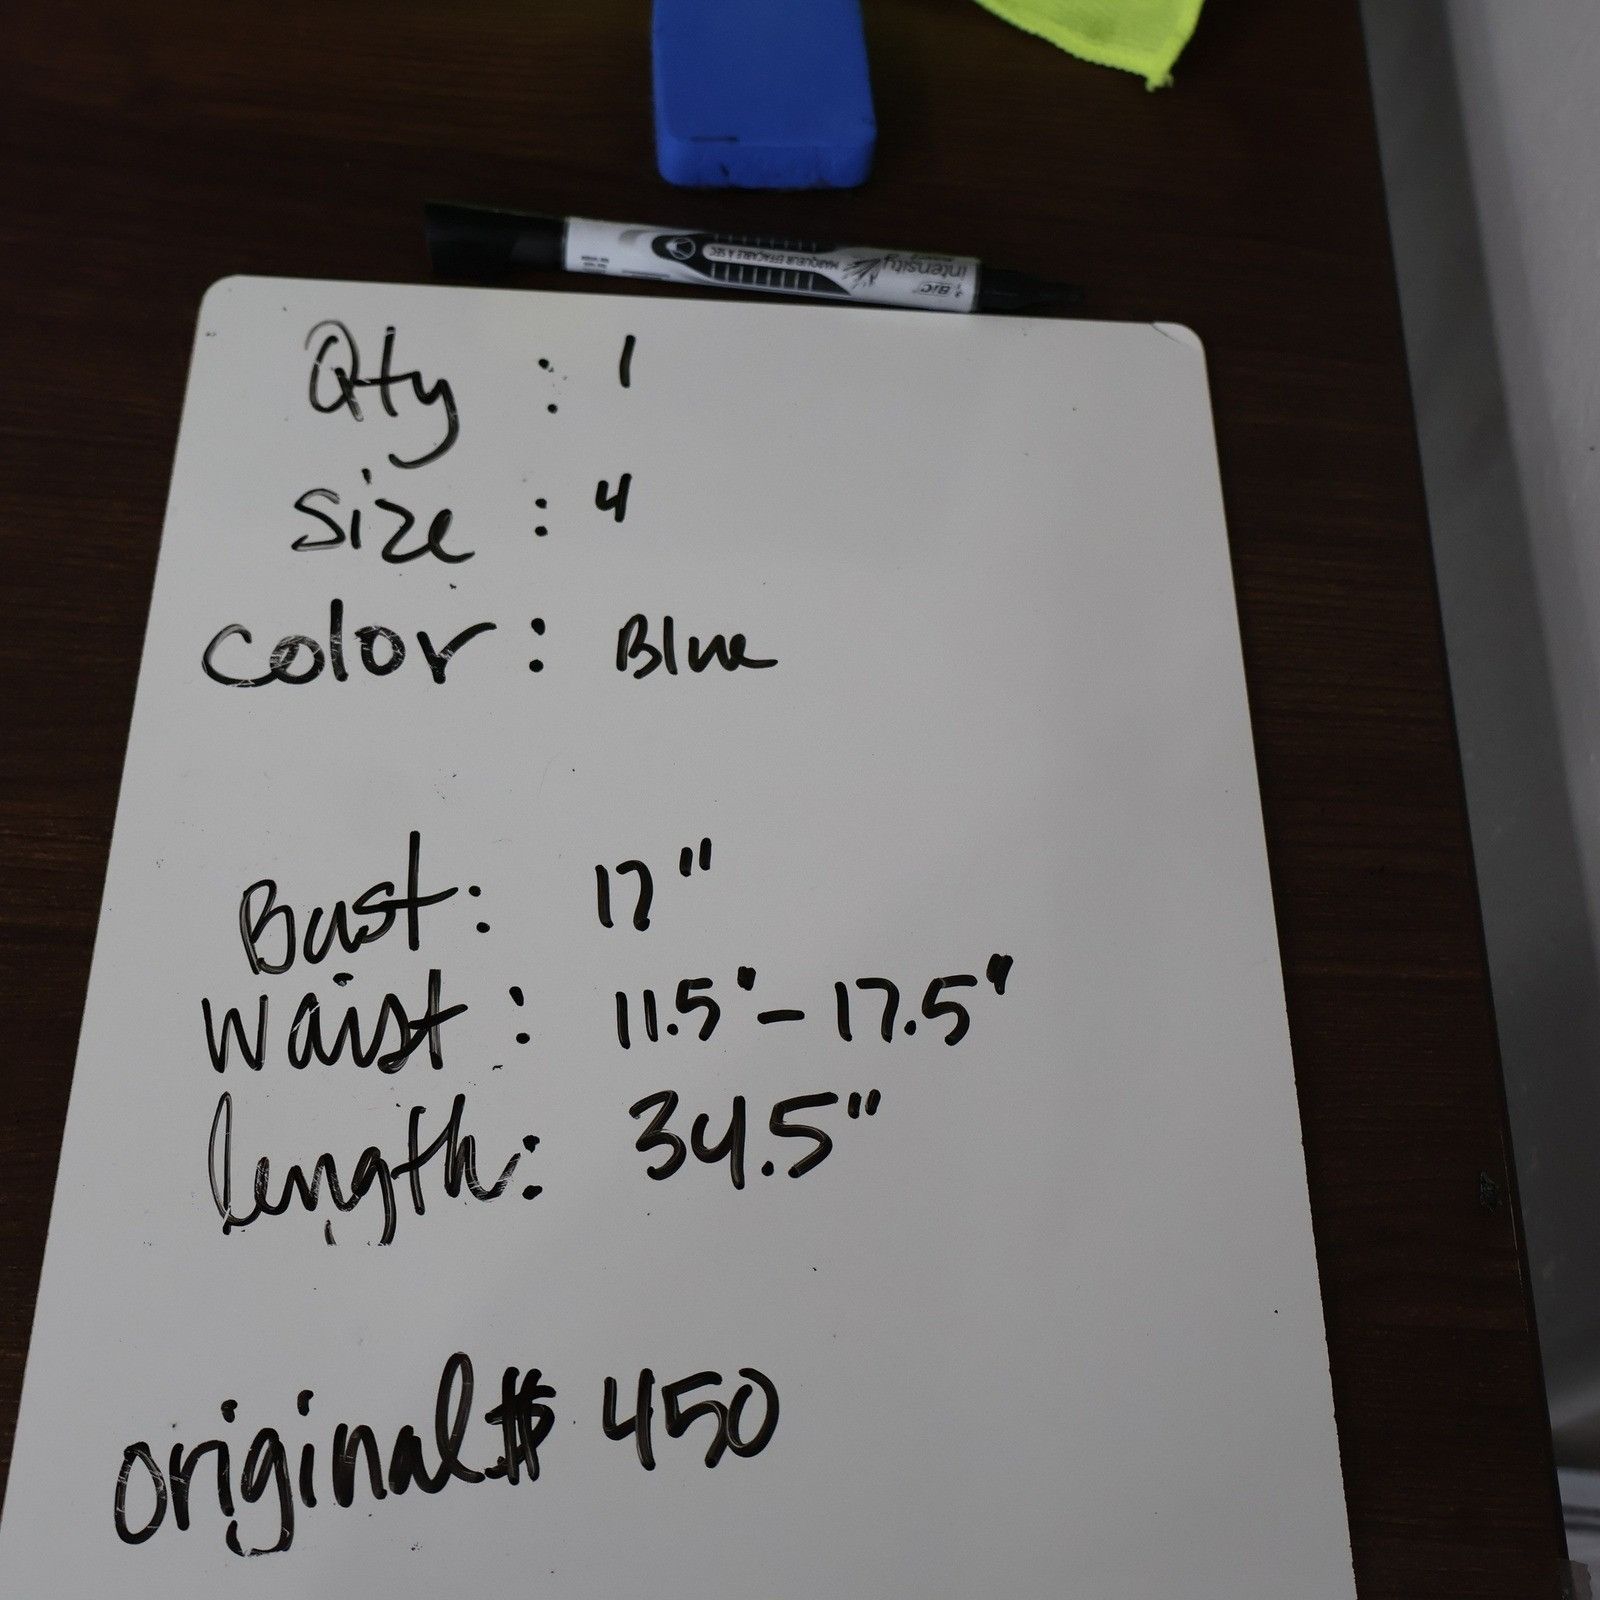 BIC
intensity
MARQUEUR EFFAÇABLE À SEC
Qty : 1
Size : 4
color : Blue
Bust : 17"
Waist : 11.5" - 17.5"
length : 34.5"
original $ 450